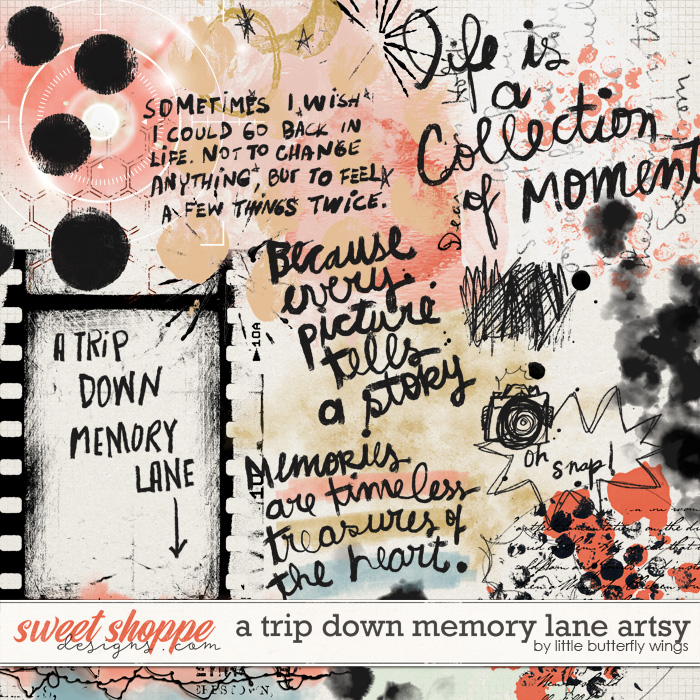 Life is
a
Collection
of moment
SOMETIMES I WISH
I COULD GO BACK IN
LIFE. NOT TO CHANGE
ANYTHING, BUT TO FEEL
A FEW THINGS TWICE.
Dear
Because
every
picture
tells
a story
10A
A TRIP
DOWN
MEMORY
LANE
oh snap!
Memories
are timeless
treasures of
the heart.
sweet shoppe
designs.com
a trip down memory lane artsy
by little butterfly wings